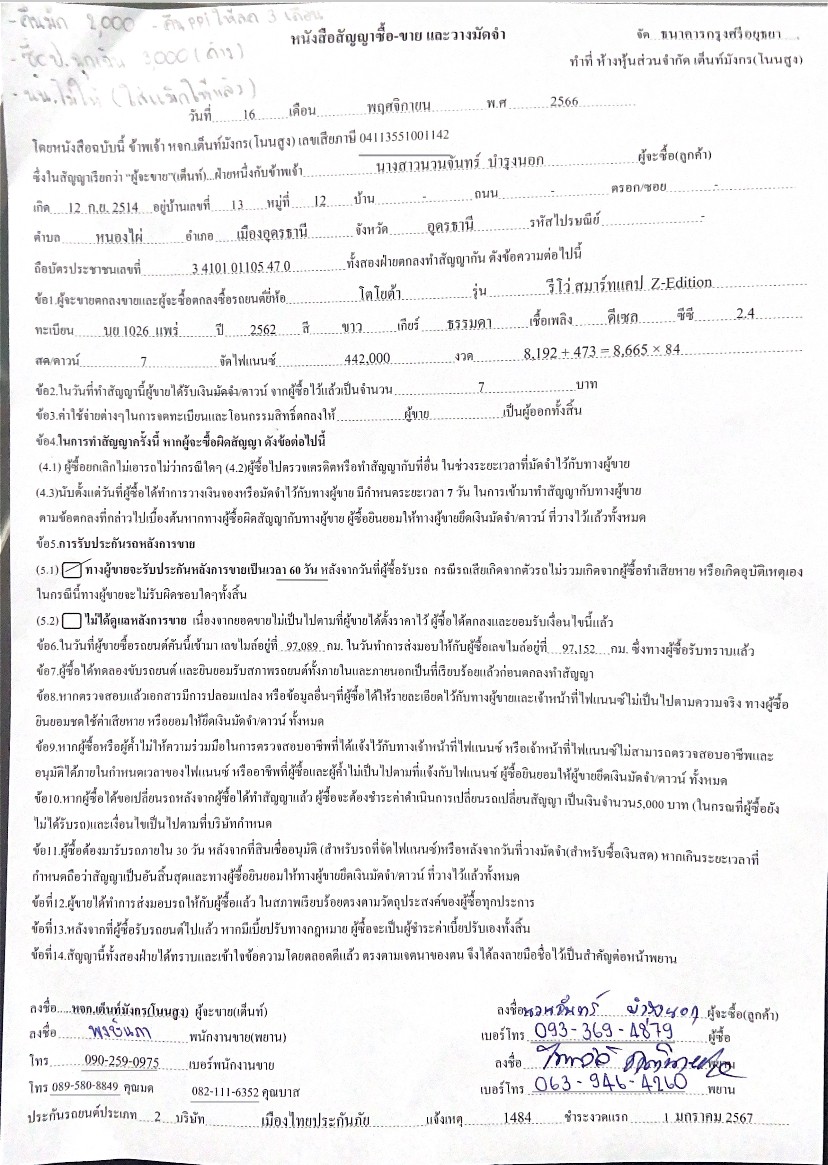 -คืนมัก 2,000 - คืน PPi ให้ลด 3 เดือน
3,000 (ค้าง)
หนังสือสัญญาซื้อ-ขาย และวางมัดจำ
จัด ธนาคารกรุงศรีอยุธยา
ทำที่ ห้างหุ้นส่วนจำกัด เต็นท์มังกร(โนนสูง)
วันที่ 16 เดือน พฤศจิกายน พ.ศ 2566
โดยหนังสือฉบับนี้ ข้าพเจ้า หจก.เต็นท์มังกร(โนนสูง) เลขเสียภาษี 04113551001142
ซึ่งในสัญญาเรียกว่า "ผู้จะขาย"(เต็นท์)...ฝ่ายหนึ่งกับข้าพเจ้า นางสาวนวนจันทร์ บำรุงนอก ผู้จะซื้อ(ลูกค้า)
เกิด 12 ก.ย. 2514 อยู่บ้านเลขที่ 13 หมู่ที่ 12 บ้าน - ถนน - ตรอก/ซอย -
ตำบล หนองไผ่ อำเภอ เมืองอุดรธานี จังหวัด อุดรธานี รหัสไปรษณีย์ -
ถือบัตรประชาชนเลขที่ 3 4101 01105 47 0 ทั้งสองฝ่ายตกลงทำสัญญากัน ดังข้อความต่อไปนี้
ข้อ1.ผู้จะขายตกลงขายและผู้จะซื้อตกลงซื้อรถยนต์ยี่ห้อ โตโยต้า รุ่น รีโว่ สมาร์ทแคป Z-Edition
ทะเบียน บย 1026 แพร่ ปี 2562 สี ขาว เกียร์ ธรรมดา เชื้อเพลิง ดีเซล ซีซี 2.4
สด/ดาวน์ 7 จัดไฟแนนซ์ 442,000 งวด 8,192 + 473 = 8,665 × 84
ข้อ2.ในวันที่ทำสัญญานี้ผู้ขายได้รับเงินมัดจำ/ดาวน์ จากผู้ซื้อไว้แล้วเป็นจำนวน 7 บาท
ข้อ3.ค่าใช้จ่ายต่างๆในการจดทะเบียนและโอนกรรมสิทธิ์ตกลงให้ ผู้ขาย เป็นผู้ออกทั้งสิ้น
ข้อ4.ในการทำสัญญาครั้งนี้ หากผู้จะซื้อผิดสัญญา ดังข้อต่อไปนี้
(4.1) ผู้ซื้อยกเลิกไม่เอารถไม่ว่ากรณีใดๆ (4.2)ผู้ซื้อไปตรวจเครดิตหรือทำสัญญากับที่อื่น ในช่วงระยะเวลาที่มัดจำไว้กับทางผู้ขาย
(4.3)นับตั้งแต่วันที่ผู้ซื้อได้ทำการวางเงินจองหรือมัดจำไว้กับทางผู้ขาย มีกำหนดระยะเวลา 7 วัน ในการเข้ามาทำสัญญากับทางผู้ขาย
ตามข้อตกลงที่กล่าวไปเบื้องต้นหากทางผู้ซื้อผิดสัญญากับทางผู้ขาย ผู้ซื้อยินยอมให้ทางผู้ขายยึดเงินมัดจำ/ดาวน์ ที่วางไว้แล้วทั้งหมด
ข้อ5.การรับประกันรถหลังการขาย
(5.1) ทางผู้ขายจะรับประกันหลังการขายเป็นเวลา 60 วัน หลังจากวันที่ผู้ซื้อรับรถ กรณีรถเสียเกิดจากตัวรถไม่รวมเกิดจากผู้ซื้อทำเสียหาย หรือเกิดอุบัติเหตุเอง
ในกรณีนี้ทางผู้ขายจะไม่รับผิดชอบใดๆทั้งสิ้น
(5.2) ไม่ได้ดูแลหลังการขาย เนื่องจากยอดขายไม่เป็นไปตามที่ผู้ขายได้ตั้งราคาไว้ ผู้ซื้อได้ตกลงและยอมรับเงื่อนไขนี้แล้ว
ข้อ6.ในวันที่ผู้ขายซื้อรถยนต์คันนี้เข้ามา เลขไมล์อยู่ที่ 97,089 กม. ในวันทำการส่งมอบให้กับผู้ซื้อเลขไมล์อยู่ที่ 97,152 กม. ซึ่งทางผู้ซื้อรับทราบแล้ว
ข้อ7.ผู้ซื้อได้ทดลองขับรถยนต์ และยินยอมรับสภาพรถยนต์ทั้งภายในและภายนอกเป็นที่เรียบร้อยแล้วก่อนตกลงทำสัญญา
ข้อ8.หากตรวจสอบแล้วเอกสารมีการปลอมแปลง หรือข้อมูลอื่นๆที่ผู้ซื้อได้ให้รายละเอียดไว้กับทางผู้ขายและเจ้าหน้าที่ไฟแนนซ์ไม่เป็นไปตามความจริง ทางผู้ซื้อ
ยินยอมชดใช้ค่าเสียหาย หรือยอมให้ยึดเงินมัดจำ/ดาวน์ ทั้งหมด
ข้อ9.หากผู้ซื้อหรือผู้ค้ำไม่ให้ความร่วมมือในการตรวจสอบอาชีพที่ได้แจ้งไว้กับทางเจ้าหน้าที่ไฟแนนซ์ หรือเจ้าหน้าที่ไฟแนนซ์ไม่สามารถตรวจสอบอาชีพและ
อนุมัติได้ภายในกำหนดเวลาของไฟแนนซ์ หรืออาชีพที่ผู้ซื้อและผู้ค้ำไม่เป็นไปตามที่แจ้งกับไฟแนนซ์ ผู้ซื้อยินยอมให้ผู้ขายยึดเงินมัดจำ/ดาวน์ ทั้งหมด
ข้อ10.หากผู้ซื้อได้ขอเปลี่ยนรถหลังจากผู้ซื้อได้ทำสัญญาแล้ว ผู้ซื้อจะต้องชำระค่าดำเนินการเปลี่ยนรถเปลี่ยนสัญญา เป็นเงินจำนวน5,000 บาท (ในกรณีที่ผู้ซื้อยัง
ไม่ได้รับรถ)และเงื่อนไขเป็นไปตามที่บริษัทกำหนด
ข้อ11.ผู้ซื้อต้องมารับรถภายใน 30 วัน หลังจากที่สินเชื่ออนุมัติ (สำหรับรถที่จัดไฟแนนซ์)หรือหลังจากวันที่วางมัดจำ(สำหรับซื้อเงินสด) หากเกินระยะเวลาที่
กำหนดถือว่าสัญญาเป็นอันสิ้นสุดและทางผู้ซื้อยินยอมให้ทางผู้ขายยึดเงินมัดจำ/ดาวน์ ที่วางไว้แล้วทั้งหมด
ข้อที่12.ผู้ขายได้ทำการส่งมอบรถให้กับผู้ซื้อแล้ว ในสภาพเรียบร้อยตรงตามวัตถุประสงค์ของผู้ซื้อทุกประการ
ข้อที่13.หลังจากที่ผู้ซื้อรับรถยนต์ไปแล้ว หากมีเบี้ยปรับทางกฎหมาย ผู้ซื้อจะเป็นผู้ชำระค่าเบี้ยปรับเองทั้งสิ้น
ข้อที่14.สัญญานี้ทั้งสองฝ่ายได้ทราบและเข้าใจข้อความโดยตลอดดีแล้ว ตรงตามเจตนาของตน จึงได้ลงลายมือชื่อไว้เป็นสำคัญต่อหน้าพยาน
ลงชื่อ.....หจก.เต็นท์มังกร(โนนสูง) ผู้จะขาย(เต็นท์) ลงชื่อ นวนจันทร์ บำรุงนอก ผู้จะซื้อ(ลูกค้า)
ลงชื่อ พนักงานขาย(พยาน) เบอร์โทร 093-369-4879 ผู้ซื้อ
โทร 090-259-0975 เบอร์พนักงานขาย ลงชื่อ พยาน
โทร 089-580-8849 คุณมด 082-111-6352 คุณบาส เบอร์โทร 063-946-4260 พยาน
ประกันรถยนต์ประเภท 2 บริษัท เมืองไทยประกันภัย แจ้งเหตุ 1484 ชำระงวดแรก 1 มกราคม 2567